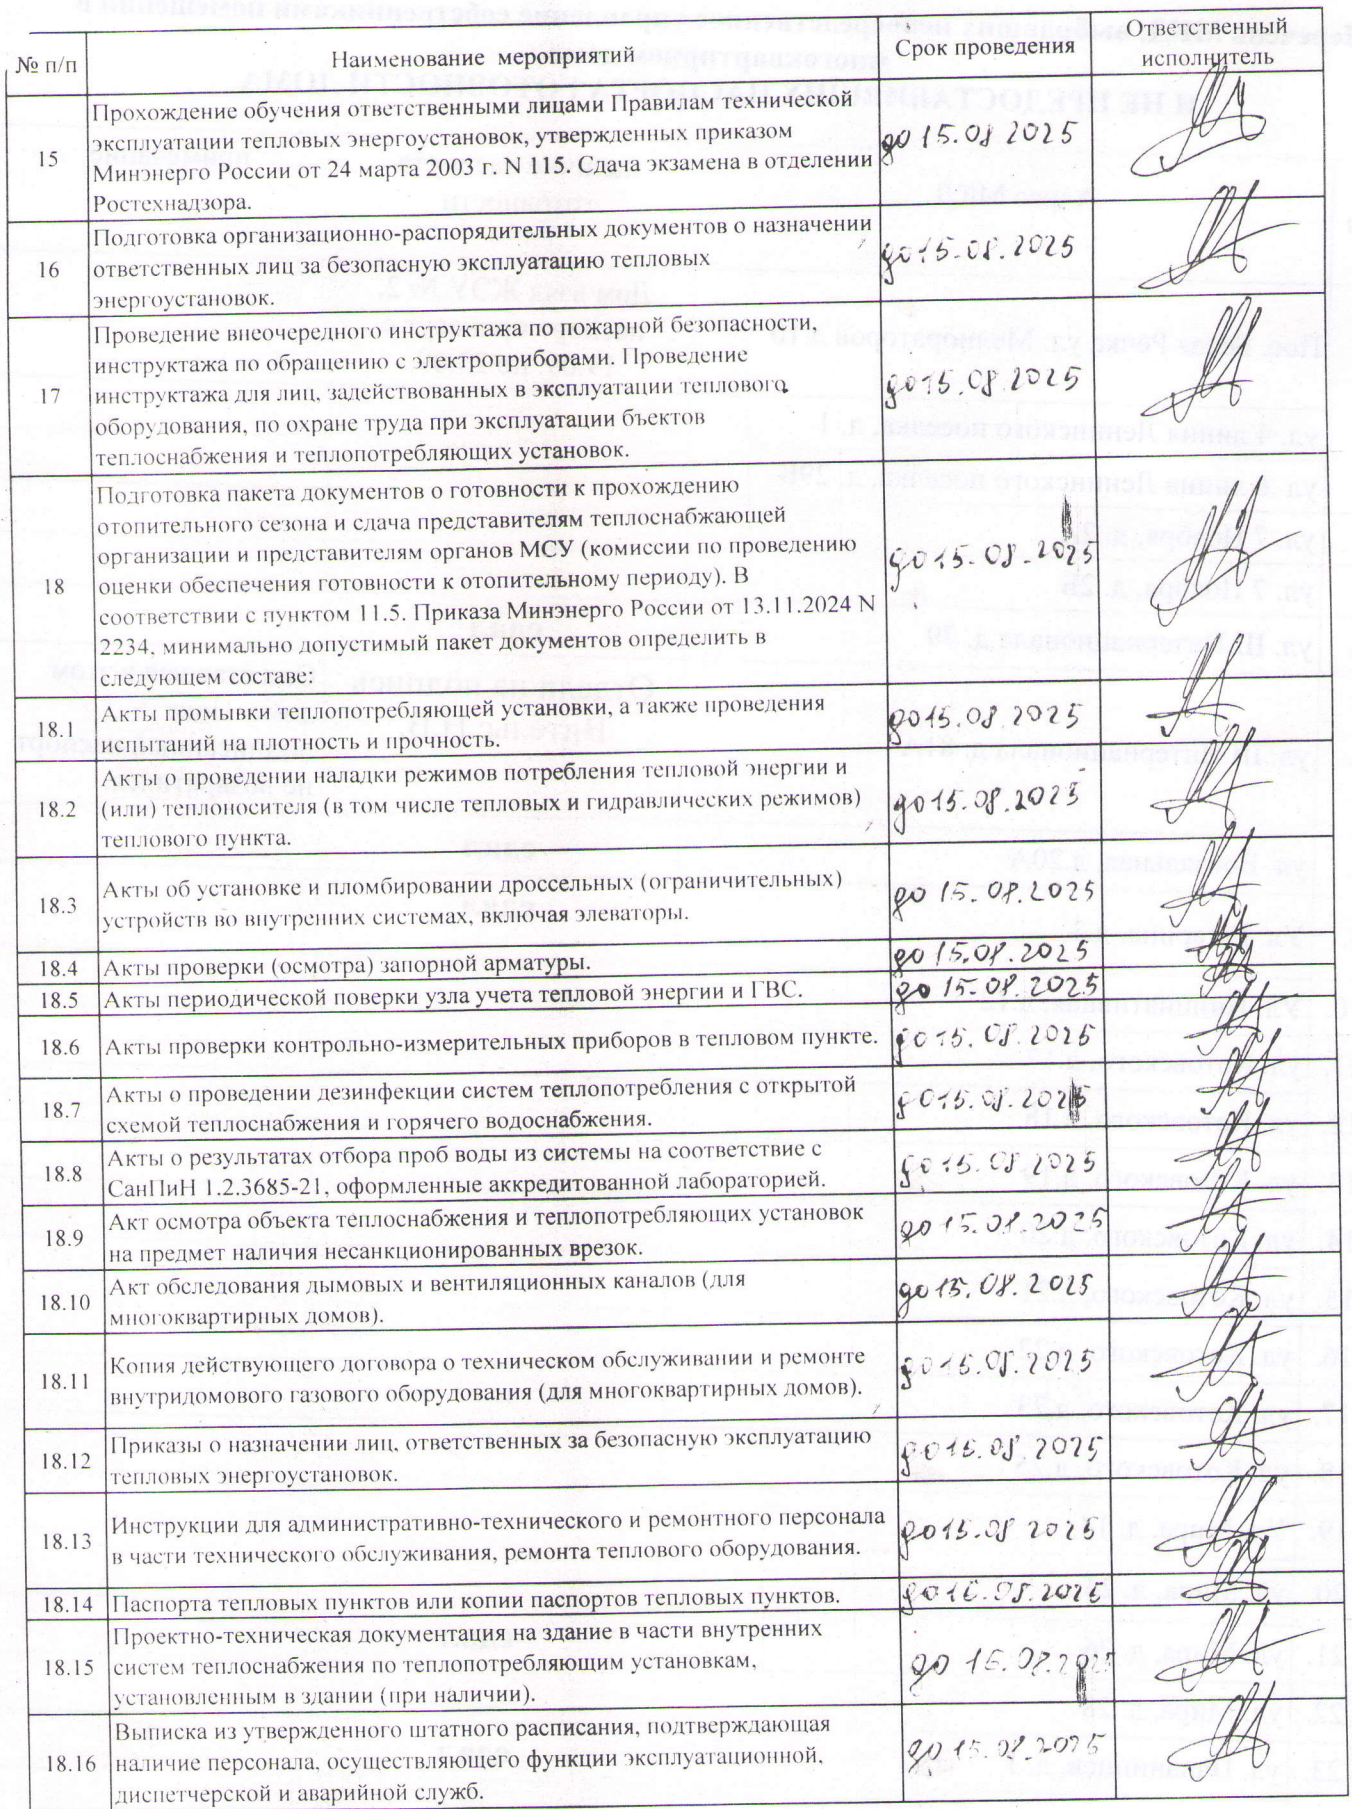 № п/п
Наименование мероприятий
Срок проведения
Ответственный
исполнитель
15
Прохождение обучения ответственными лицами Правилам технической
эксплуатации тепловых энергоустановок, утвержденных приказом
Минэнерго России от 24 марта 2003 г. N 115. Сдача экзамена в отделении
Ростехнадзора.
до 15.08.2025
16
Подготовка организационно-распорядительных документов о назначении
ответственных лиц за безопасную эксплуатацию тепловых
энергоустановок.
до 15.08.2025
17
Проведение внеочередного инструктажа по пожарной безопасности,
инструктажа по обращению с электроприборами. Проведение
инструктажа для лиц, задействованных в эксплуатации теплового
оборудования, по охране труда при эксплуатации бъектов
теплоснабжения и теплопотребляющих установок.
до 15.08.2025
18
Подготовка пакета документов о готовности к прохождению
отопительного сезона и сдача представителям теплоснабжающей
организации и представителям органов МСУ (комиссии по проведению
оценки обеспечения готовности к отопительному периоду). В
соответствии с пунктом 11.5. Приказа Минэнерго России от 13.11.2024 N
2234, минимально допустимый пакет документов определить в
следующем составе:
до 15.08.2025
18.1
Акты промывки теплопотребляющей установки, а также проведения
испытаний на плотность и прочность.
до 15.08.2025
18.2
Акты о проведении наладки режимов потребления тепловой энергии и
(или) теплоносителя (в том числе тепловых и гидравлических режимов)
теплового пункта.
до 15.08.2025
18.3
Акты об установке и пломбировании дроссельных (ограничительных)
устройств во внутренних системах, включая элеваторы.
до 15.08.2025
18.4
Акты проверки (осмотра) запорной арматуры.
до 15.08.2025
18.5
Акты периодической поверки узла учета тепловой энергии и ГВС.
до 15.08.2025
18.6
Акты проверки контрольно-измерительных приборов в тепловом пункте.
до 15.08.2025
18.7
Акты о проведении дезинфекции систем теплопотребления с открытой
схемой теплоснабжения и горячего водоснабжения.
до 15.08.2025
18.8
Акты о результатах отбора проб воды из системы на соответствие с
СанПиН 1.2.3685-21, оформленные аккредитованной лабораторией.
до 15.08.2025
18.9
Акт осмотра объекта теплоснабжения и теплопотребляющих установок
на предмет наличия несанкционированных врезок.
до 15.08.2025
18.10
Акт обследования дымовых и вентиляционных каналов (для
многоквартирных домов).
до 15.08.2025
18.11
Копия действующего договора о техническом обслуживании и ремонте
внутридомового газового оборудования (для многоквартирных домов).
до 15.08.2025
18.12
Приказы о назначении лиц, ответственных за безопасную эксплуатацию
тепловых энергоустановок.
до 15.08.2025
18.13
Инструкции для административно-технического и ремонтного персонала
в части технического обслуживания, ремонта теплового оборудования.
до 15.08.2025
18.14
Паспорта тепловых пунктов или копии паспортов тепловых пунктов.
до 15.08.2025
18.15
Проектно-техническая документация на здание в части внутренних
систем теплоснабжения по теплопотребляющим установкам,
установленным в здании (при наличии).
до 15.08.2025
18.16
Выписка из утвержденного штатного расписания, подтверждающая
наличие персонала, осуществляющего функции эксплуатационной,
диспетчерской и аварийной служб.
до 15.08.2025